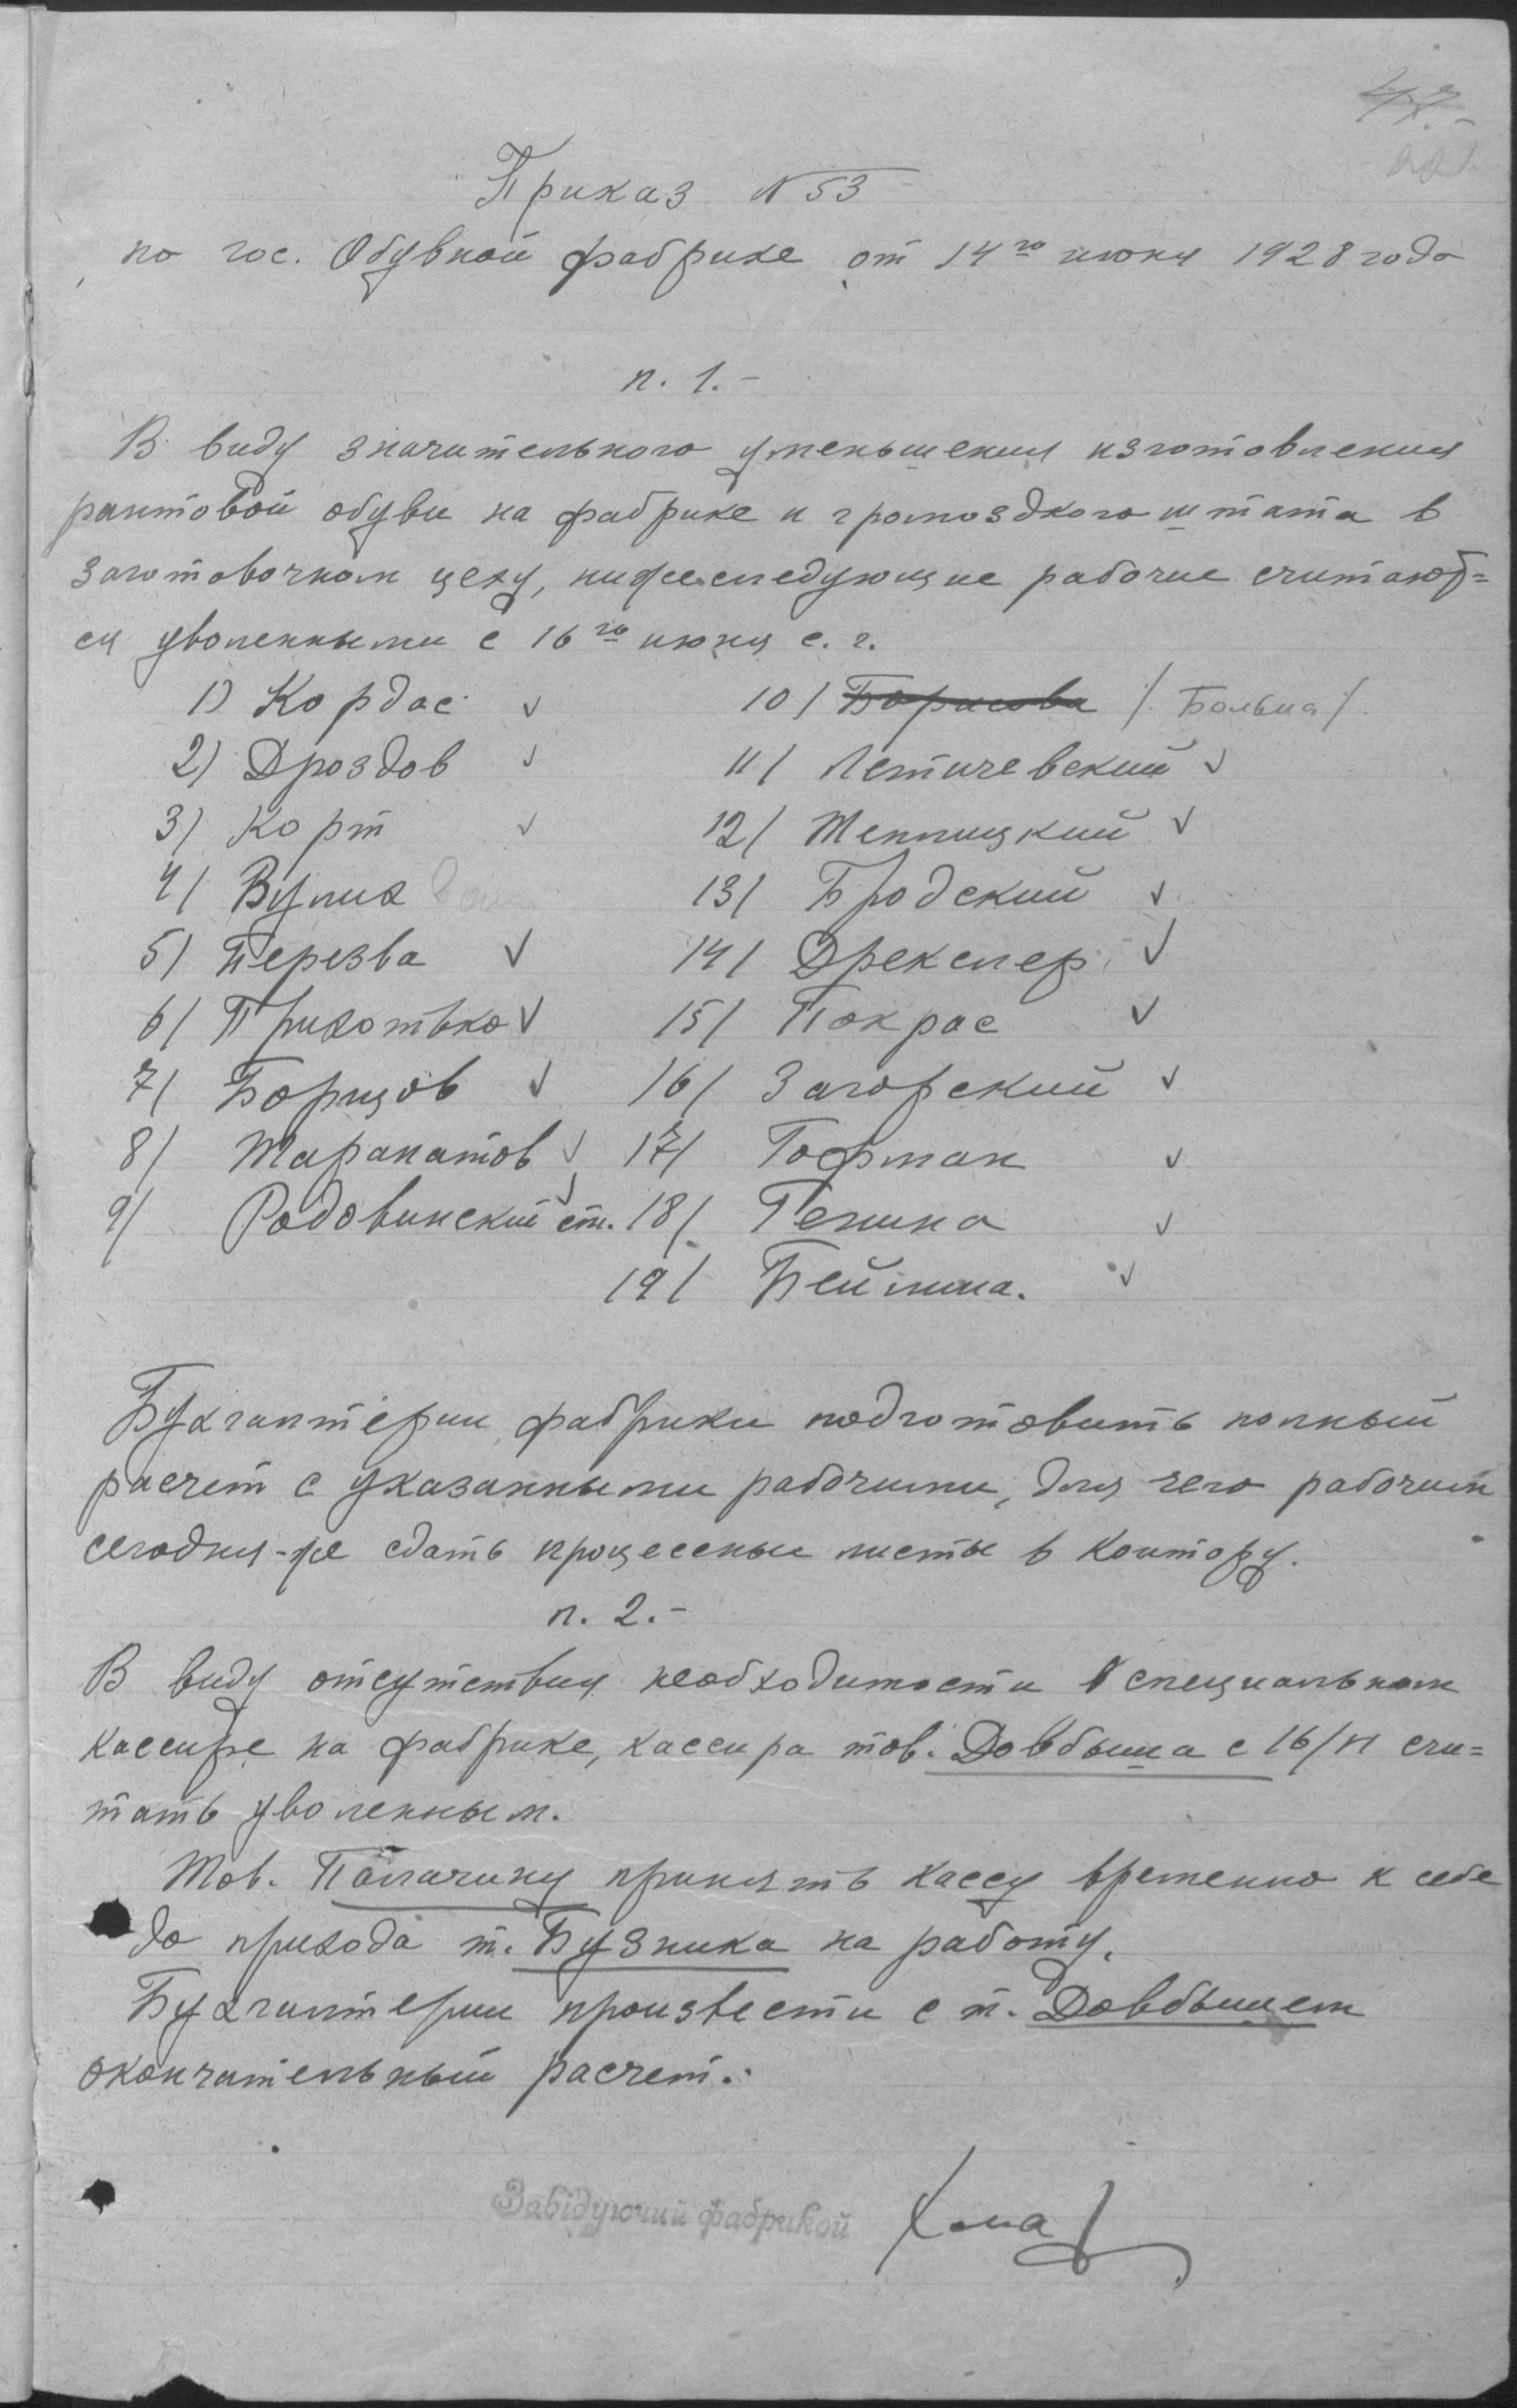 Приказ N 53
по гос. Обувной фабрике от 14го июня 1928 года
п. 1.-
В виду значительного уменьшения изготовления
рантовой обуви на фабрике и громоздкого штата в
заготовочном цеху, нижеследующие рабочие считают=
ся уволенными с 16го июня с. г.
1) Кордас ✓ 10/ Борисова /. Больна /.
2) Дроздов ✓ 11/ Летичевский ✓
3) Корт ✓ 12/ Теплицкий ✓
4/ Вулих 13/ Бродский ✓
5/ Перезва ✓ 14/ Дрекслер ✓
6/ Прихотько ✓ 15/ Покрас ✓
7/ Борщов ✓ 16/ Загорский ✓
8/ Тарапатов ✓ 17/ Гофман ✓
9/ Радовинский ст. ✓ 18/ Генина ✓
19/ Бейлина. ✓
Бухгалтерии фабрики подготовить полный
расчет с указанными рабочими, для чего рабочим
сегодня-же сдать процессные листы в контору.
п. 2.-
В виду отсутствия необходимости в специальном
кассире на фабрике, кассира тов. Довбыша с 16/VI счи=
тать уволенным.
Тов. Палачину принять кассу временно к себе
до прихода т. Бузника на работу.
Бухгалтерии произвести с т. Довбышем
окончательный расчет.
Завідуючий фабрикой